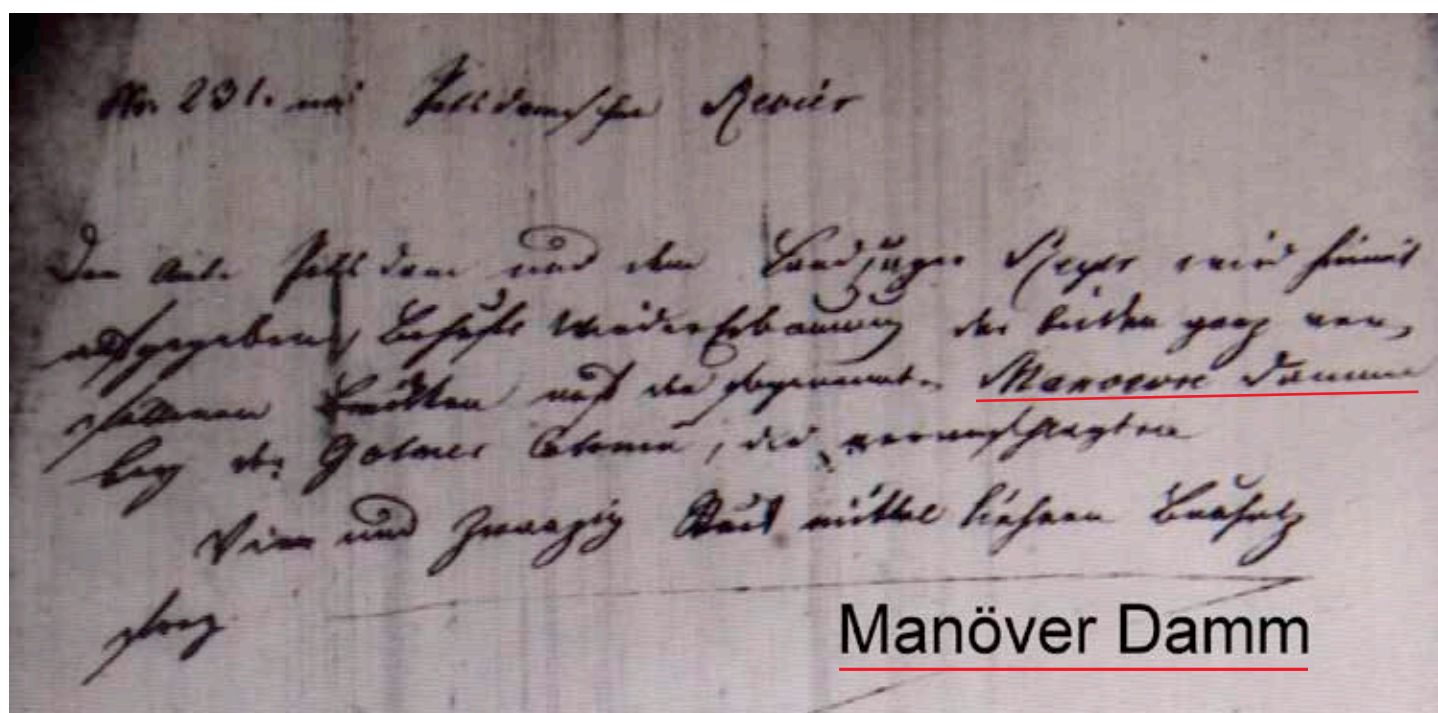 No. 231. aus Potsdamschen Revier
Dem Amte Potsdam und dem Landjäger wird hiemit
aufgegeben, Behufs Wiedererbauung der beiden ganz ver-
fallenen Brücken auf den sogenannten Manoeuvre Damme
bey der Golmer Colonie, die veranschlagten
Vier und Zwanzig Stück mittel kiehnen Bauholz
Manöver Damm